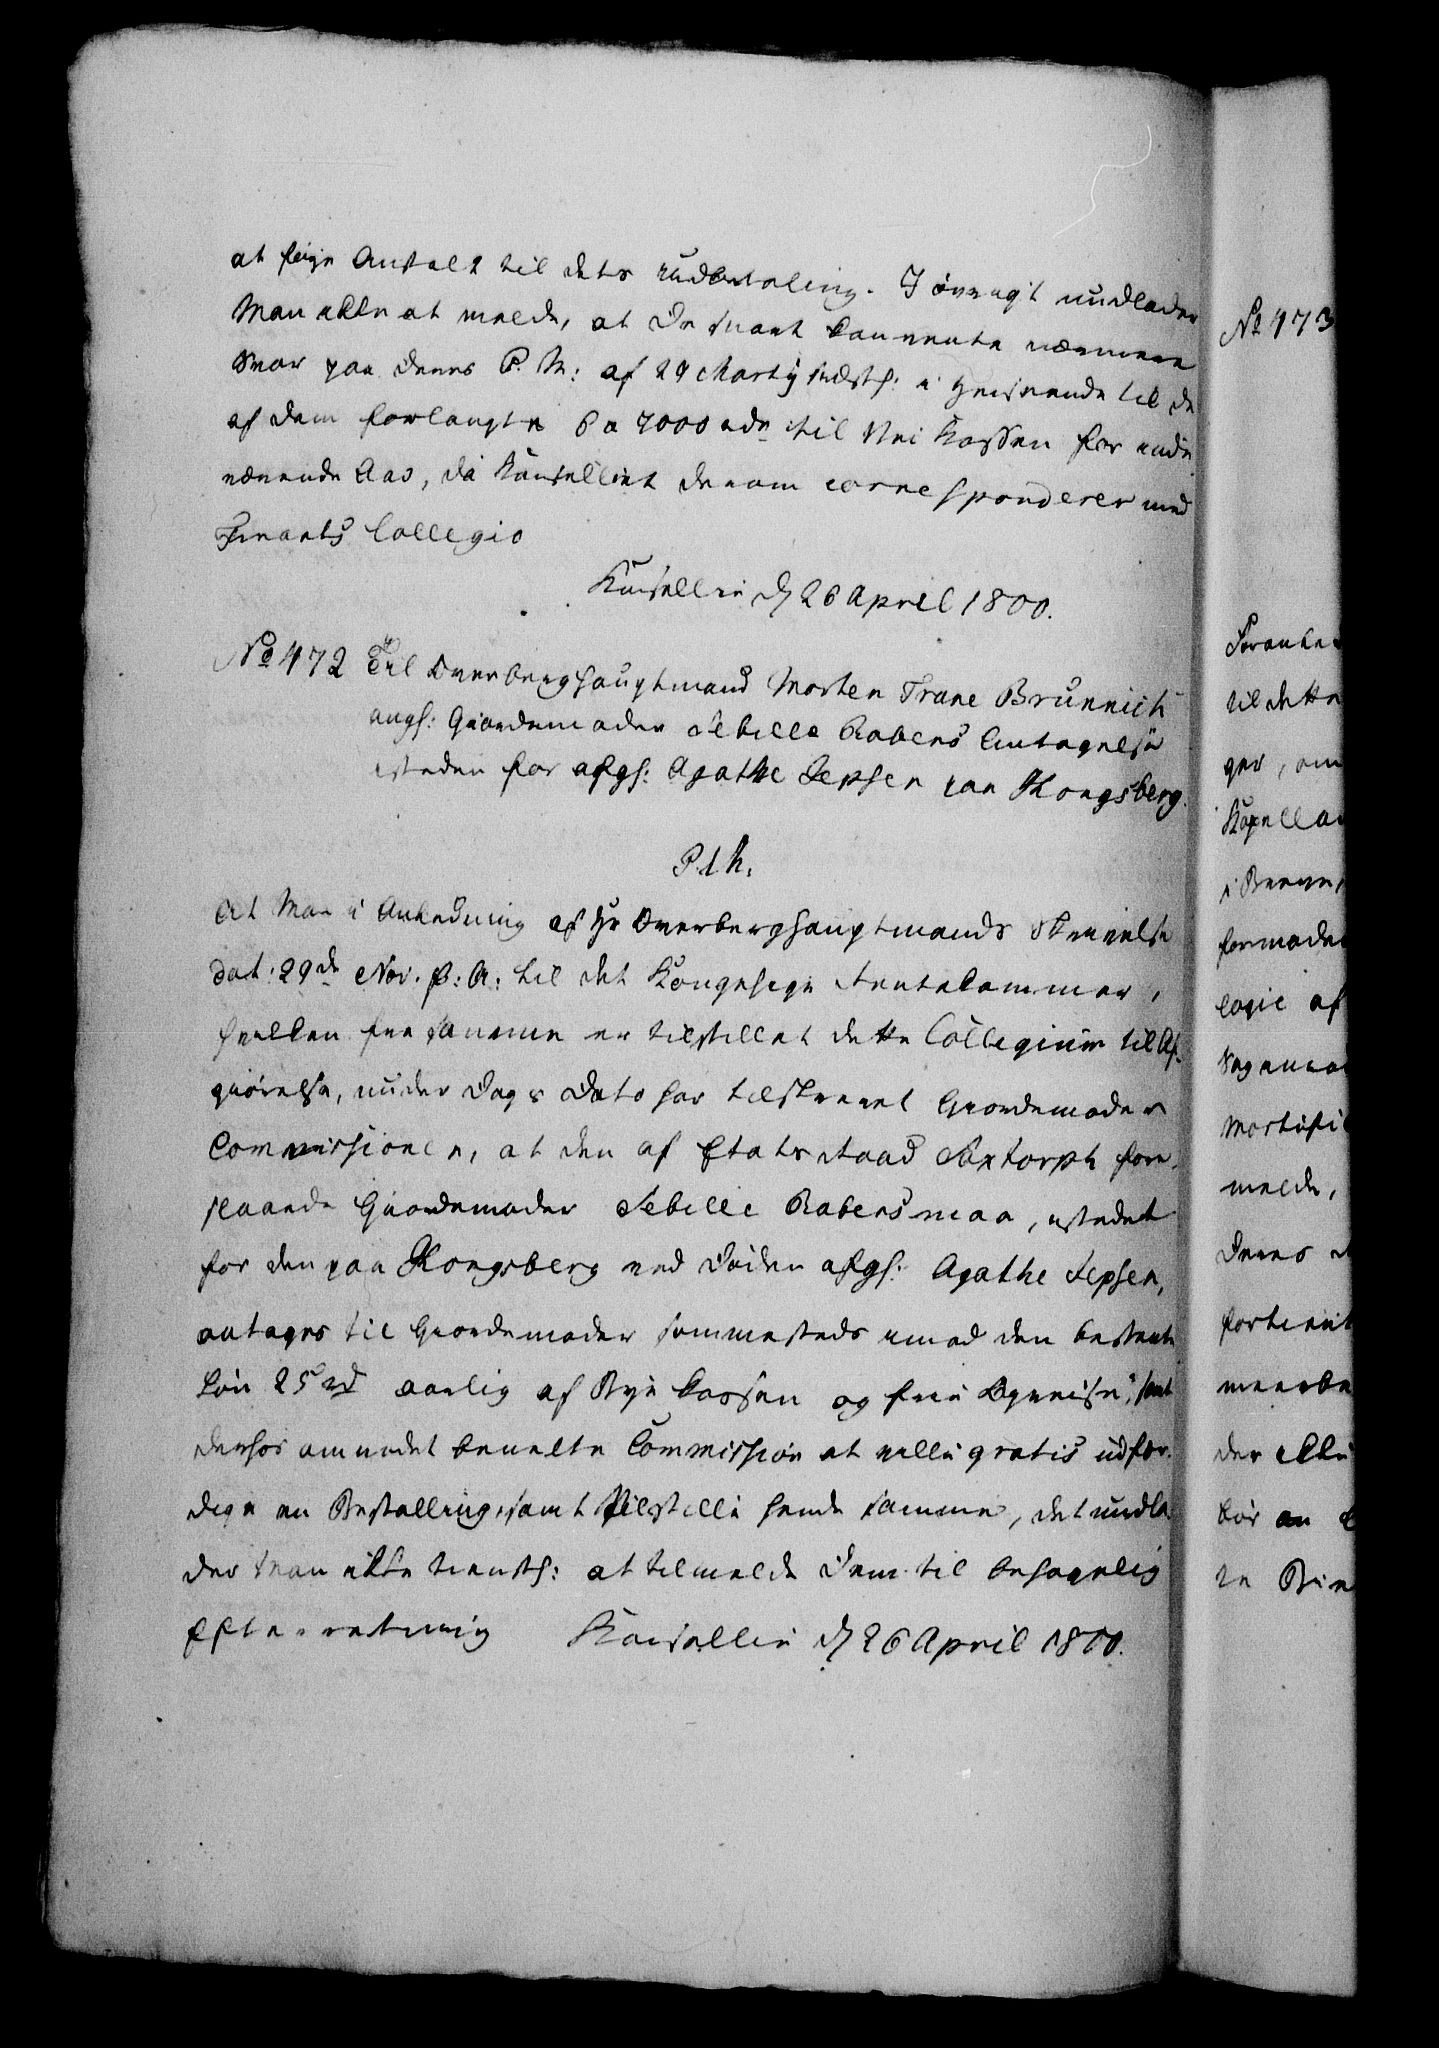 at føye Anstalt til dets Udbetaling. I øvrigt undlader
Man ikke at melde, at De snart kan vente nærmere
Svar paa Deres P. M: af 29 Martÿ sidstl: i Henseende til de
af Dem forlangte 6 a 7000 rdr til Vei Kassen for inde
værende Aar, da Kancelliet derom corresponderer med
Finants Collegio
Kancellie d. 26 April 1800.
No 472 Til Overberghauptmand Morten Trane Brünnich
angl: Giordemoder Sebille Rabens Antagelse
isteden for afgl: Agathe Jepsen paa Kongsberg.
P. M.
At Man i Anledning af Hr Overberghauptmands Skrivelse
dat: 29de Nov. p: A: til det Kongelige Rentekammer,
hvilken fra samme er tilstillet dette Collegium til Af-
giørelse, under Dags Dato har tilskrevet Giordemoder
Commissionen, at den af Etatsraad Saxtorph fore-
slaaede Giordemoder Sebille Rabens maa, istedet
for den paa Kongsberg ved Døden afgl: Agathe Jepsen,
antages til Giordemoder sammesteds imod den bestemte
Løn 25 rd aarlig af Bye Kassen og frie Opreise, samt
derhos anmodet bemelte Commission at ville gratis udfær-
dige en Bestalling, samt tilstille hende samme, det undla-
der Man ikke tienstl: at tilmelde Dem til behagelig
Efterretning Kancellie d. 26 April 1800.
No 473
til dette
ger, om
Kapella
formode
logie af
melde,
Deres
der ikke